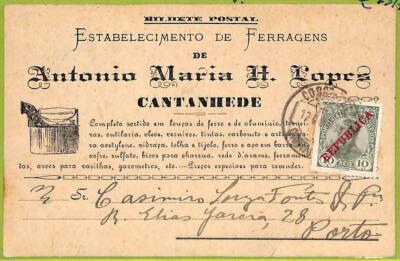 BILHETE POSTAL
ESTABELECIMENTO DE FERRAGENS
DE
Antonio Maria H. Lopes
CANTANHEDE
Completo sortido em louças de ferro e de aluminio,
cutilaria, oleos, vernizes, tintas, carboneto e
para acetylene, vidraça, telha e tijolo, ferro e aço em barra,
sulfato, bicos para charrua, rede d'arame,
tas, arcos para vasilhas, gazometros, etc. Preços especiaes para revender.
CORREIO
REPUBLICA
10
Sr. Casimiro
R. Elias Garcia, 28
Porto